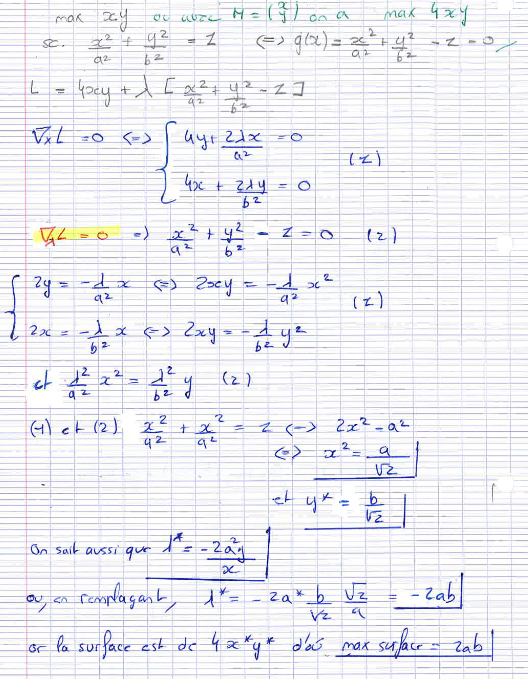 max xy ou avec M = (x y) on a max 4xy
sc. x²/a² + y²/b² = 1 <=> g(x) = x²/a² + y²/b² - 1 = 0
L = 4xy + λ [ x²/a² + y²/b² - 1 ]
∇ₓL = 0 <=> { 4y + 2λx/a² = 0
(1)
4x + 2λy/b² = 0
∇λL = 0 => x²/a² + y²/b² - 1 = 0 (2)
{ 2y = -λ/a² x <=> 2xy = -λ/a² x²
(1)
2x = -λ/b² x <=> 2xy = -λ/b² y²
et λ²/a² x² = λ²/b² y (2)
(1) et (2) x²/a² + x²/a² = 1 <-> 2x² - a²
<=> x² = a/√2
et y* = b/√2
On sait aussi que λ* = -2a²y/x
ou, en remplaçant, λ* = -2a* b/√2 √2/a = -2ab
or la surface est de 4x*y* d'où max surface = 2ab